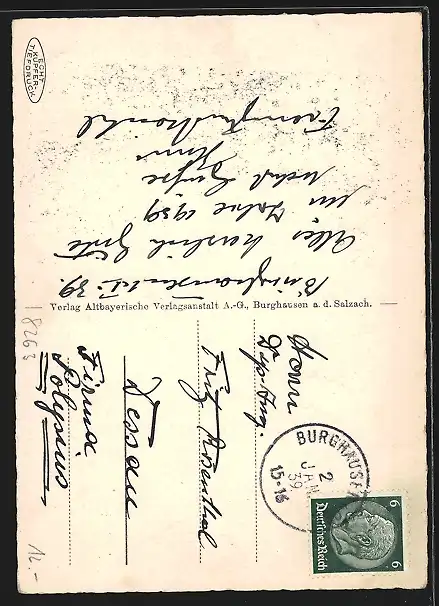 ECHT
KUPFER-
TIEFDRUCK
Alles herzlich Gute
im Jahre 1939
nebst Grüße
Verlag Altbayerische Verlagsanstalt A.-G., Burghausen a. d. Salzach.
Herrn
Dip. Ing.
Fritz Rosenthal
Dessau
Firma
Polysius
BURGHAUSEN
2
JAN
39
15-16
6 6
Deutsches Reich
18263
12.-